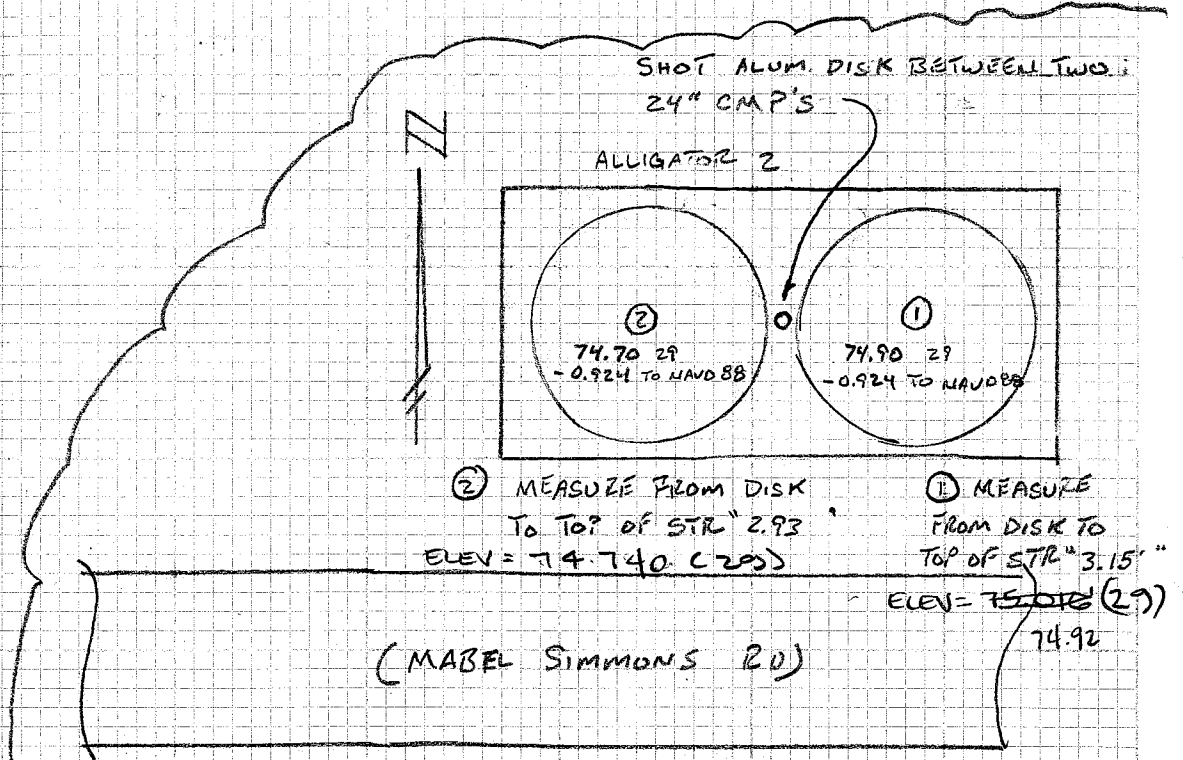 SHOT ALUM. DISK BETWEEN TWO
24" CMP'S
N
ALLIGATOR 2
2
74.70 29
-0.924 TO NAVD 88
1
74.90 29
-0.924 TO NAVD 88
2 MEASURE FROM DISK
TO TOP OF STR "2.93
ELEV = 74.740 (29)
1 MEASURE
FROM DISK TO
TOP OF STR "3.15'"
ELEV= (29)
74.92
(MABEL SIMMONS RD)